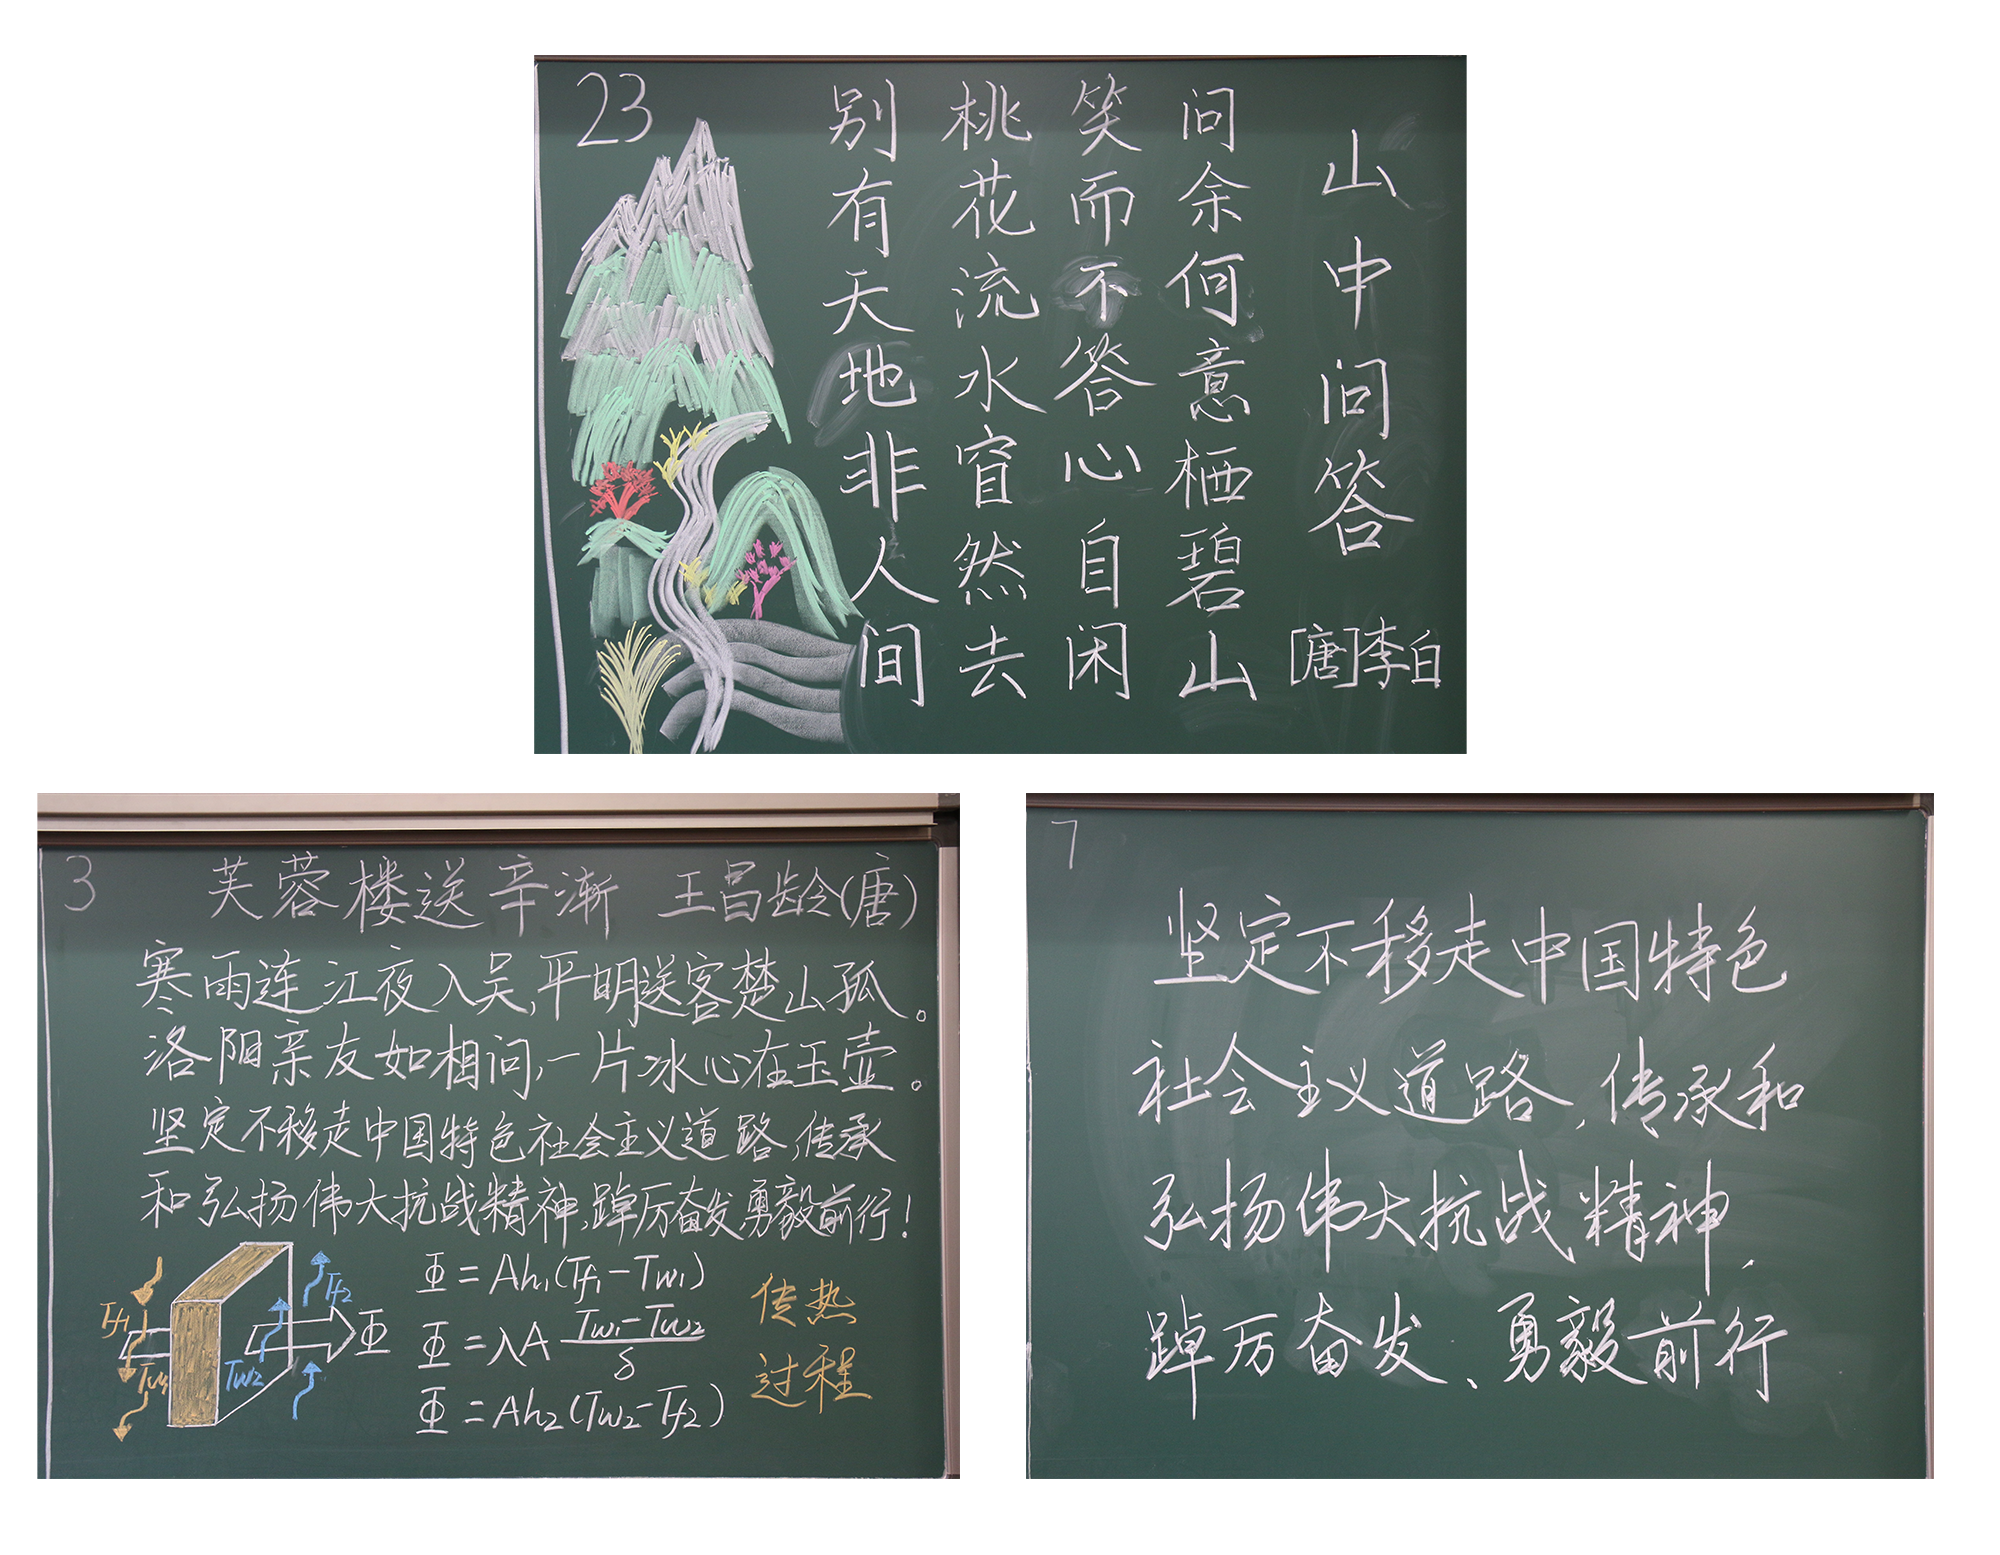 23
山中问答
[唐]李白
问余何意栖碧山
笑而不答心自闲
桃花流水窅然去
别有天地非人间
3
芙蓉楼送辛渐 王昌龄(唐)
寒雨连江夜入吴,平明送客楚山孤。
洛阳亲友如相问,一片冰心在玉壶。
坚定不移走中国特色社会主义道路,传承
和弘扬伟大抗战精神,踔厉奋发勇毅前行!
Tf1
Tw1
Tw2
Tf2
Φ
Φ=Ah1(Tf1-Tw1)
Φ=λA (Tw1-Tw2)/δ
Φ=Ah2(Tw2-Tf2)
传热
过程
7
坚定不移走中国特色
社会主义道路,传承和
弘扬伟大抗战精神,
踔厉奋发、勇毅前行